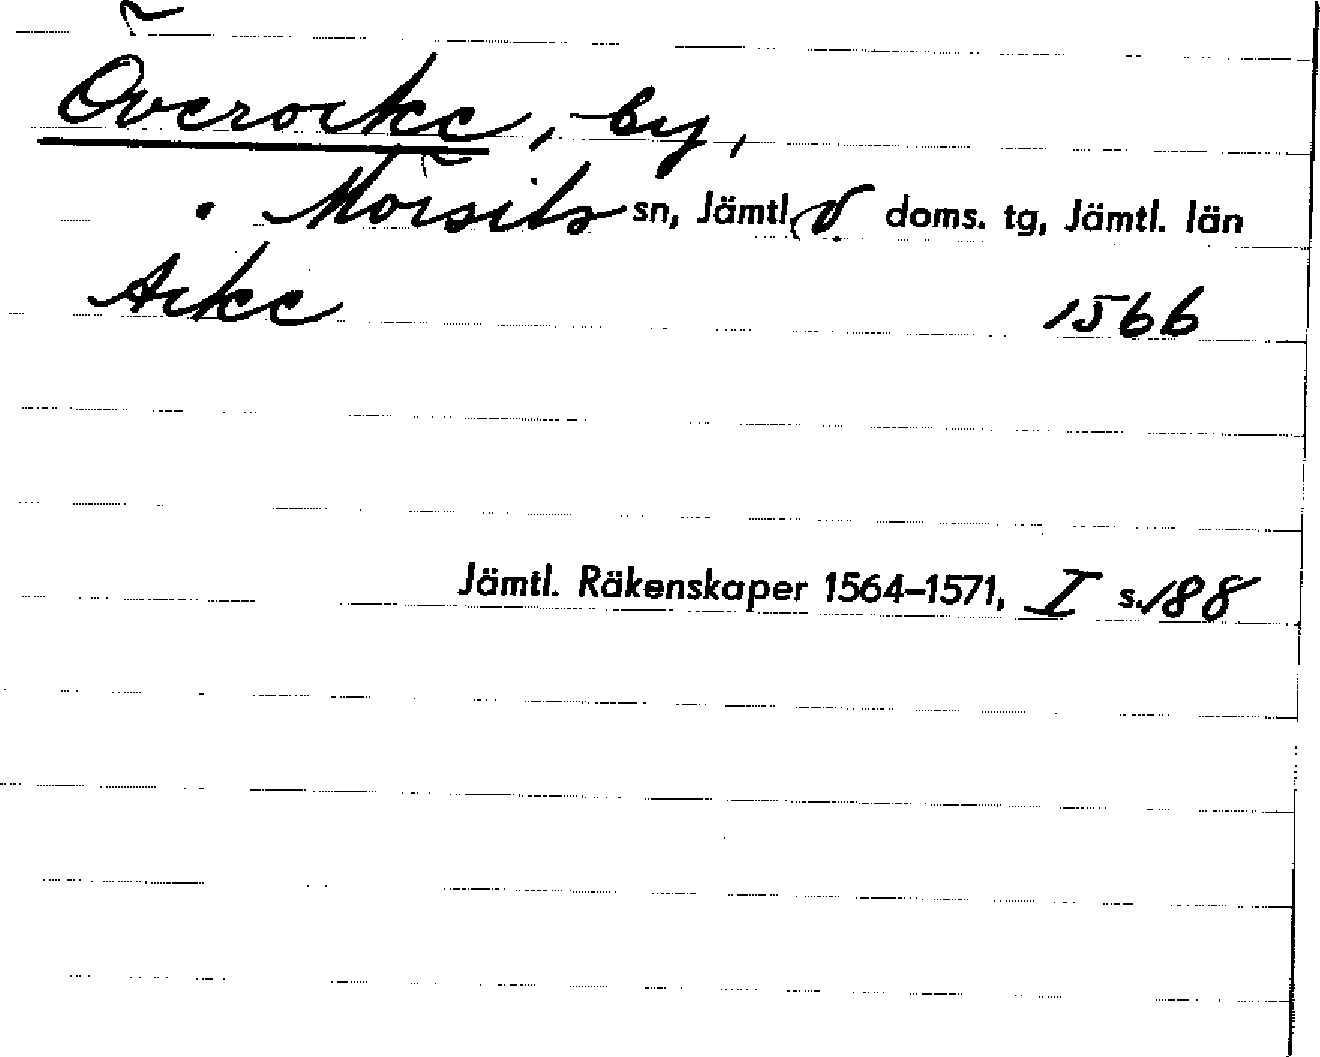 Överocke, by,
Mörsils sn, Jämtl. v. doms. tg, Jämtl. län
Ackc 1566
Jämtl. Räkenskaper 1564–1571, I s. 188